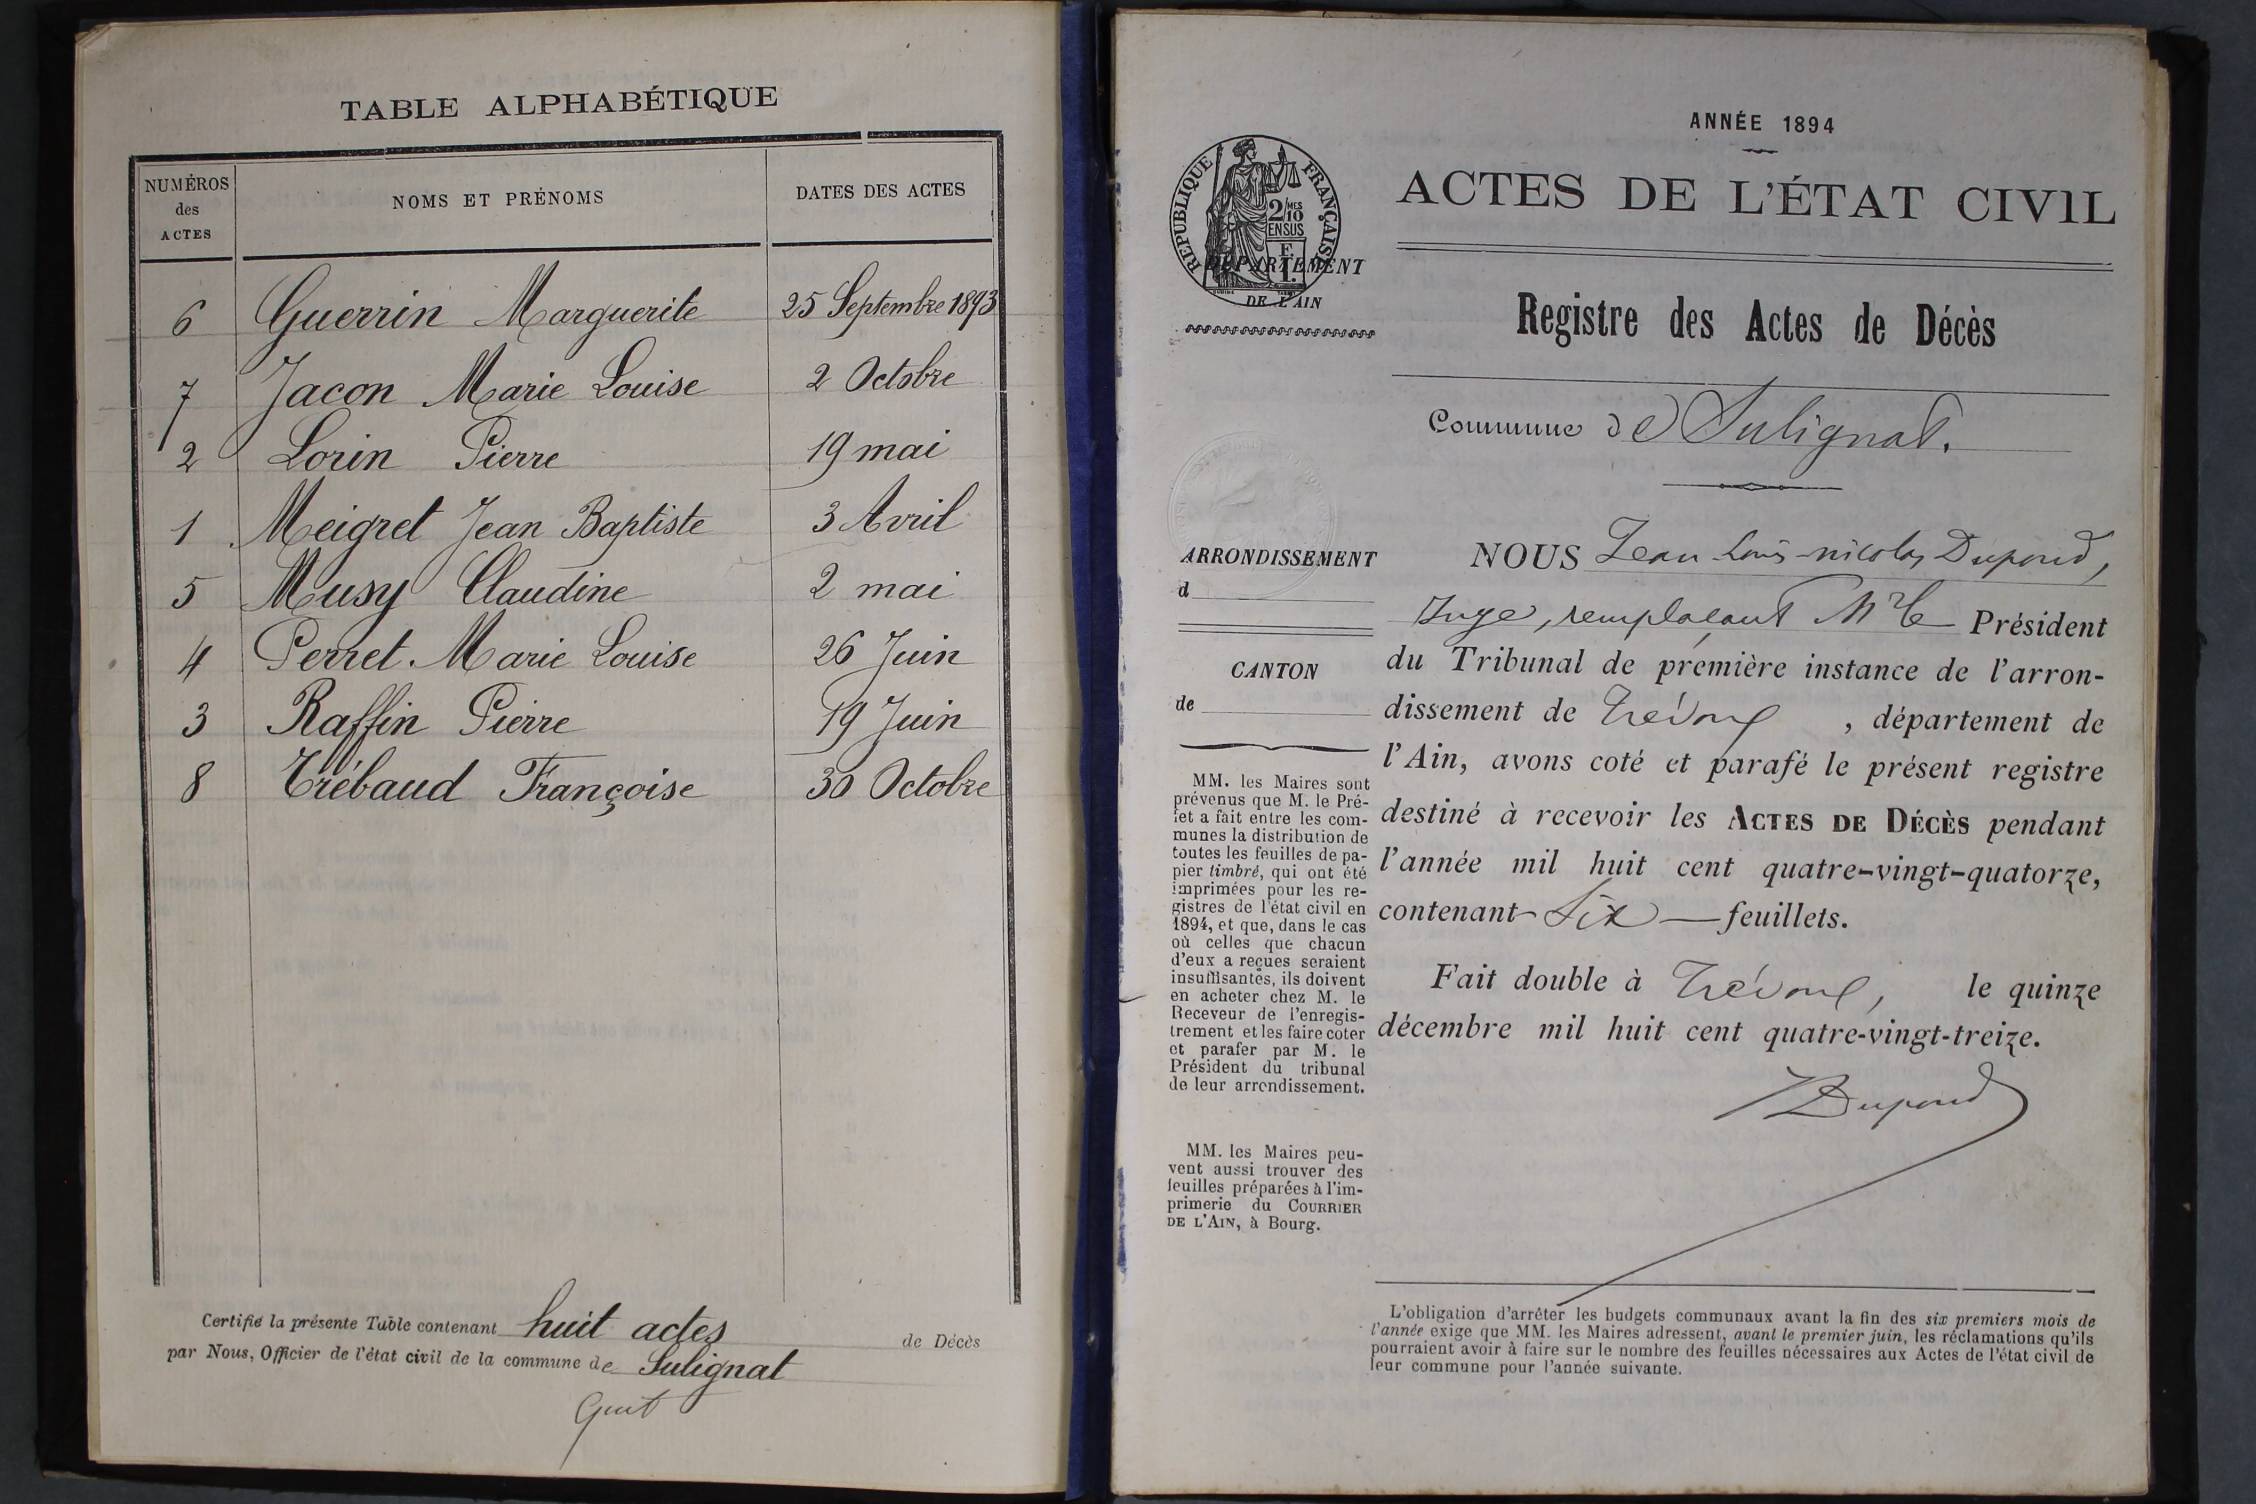 TABLE ALPHABÉTIQUE
NUMÉROS des ACTES NOMS ET PRÉNOMS DATES DES ACTES
6 Guerrin Marguerite 25 Septembre 1893
7 Jacon Marie Louise 2 Octobre
2 Lorin Pierre 19 mai
1 Meigret Jean Baptiste 3 Avril
5 Musy Claudine 2 mai
4 Perret Marie Louise 26 Juin
3 Raffin Pierre 19 Juin
8 Trébaud Françoise 30 Octobre
Certifié la présente Table contenant huit actes de Décès
par Nous, Officier de l'état civil de la commune de Sulignat
ANNÉE 1894
ACTES DE L'ÉTAT CIVIL
RÉPUBLIQUE FRANÇAISE
2/10 MES
EN SUS
DÉPARTEMENT
DE L'AIN
Registre des Actes de Décès
Commune de Sulignat.
ARRONDISSEMENT
d
CANTON
de
MM. les Maires sont
prévenus que M. le Pré-
fet a fait entre les com-
munes la distribution de
toutes les feuilles de pa-
pier timbré, qui ont été
imprimées pour les re-
gistres de l'état civil en
1894, et que, dans le cas
où celles que chacun
d'eux a reçues seraient
insuffisantes, ils doivent
en acheter chez M. le
Receveur de l'enregis-
trement et les faire coter
et parafer par M. le
Président du tribunal
de leur arrondissement.
MM. les Maires peu-
vent aussi trouver des
feuilles préparées à l'im-
primerie du COURRIER
DE L'AIN, à Bourg.
NOUS Jean Louis-nicolas Dupond,
Juge, remplaçant Mr le Président
du Tribunal de première instance de l'arron-
dissement de Trévoux, département de
l'Ain, avons coté et parafé le présent registre
destiné à recevoir les ACTES DE DÉCÈS pendant
l'année mil huit cent quatre-vingt-quatorze,
contenant Six feuillets.
Fait double à Trévoux, le quinze
décembre mil huit cent quatre-vingt-treize.
Dupond
L'obligation d'arrêter les budgets communaux avant la fin des six premiers mois de
l'année exige que MM. les Maires adressent, avant le premier juin, les réclamations qu'ils
pourraient avoir à faire sur le nombre des feuilles nécessaires aux Actes de l'état civil de
leur commune pour l'année suivante.